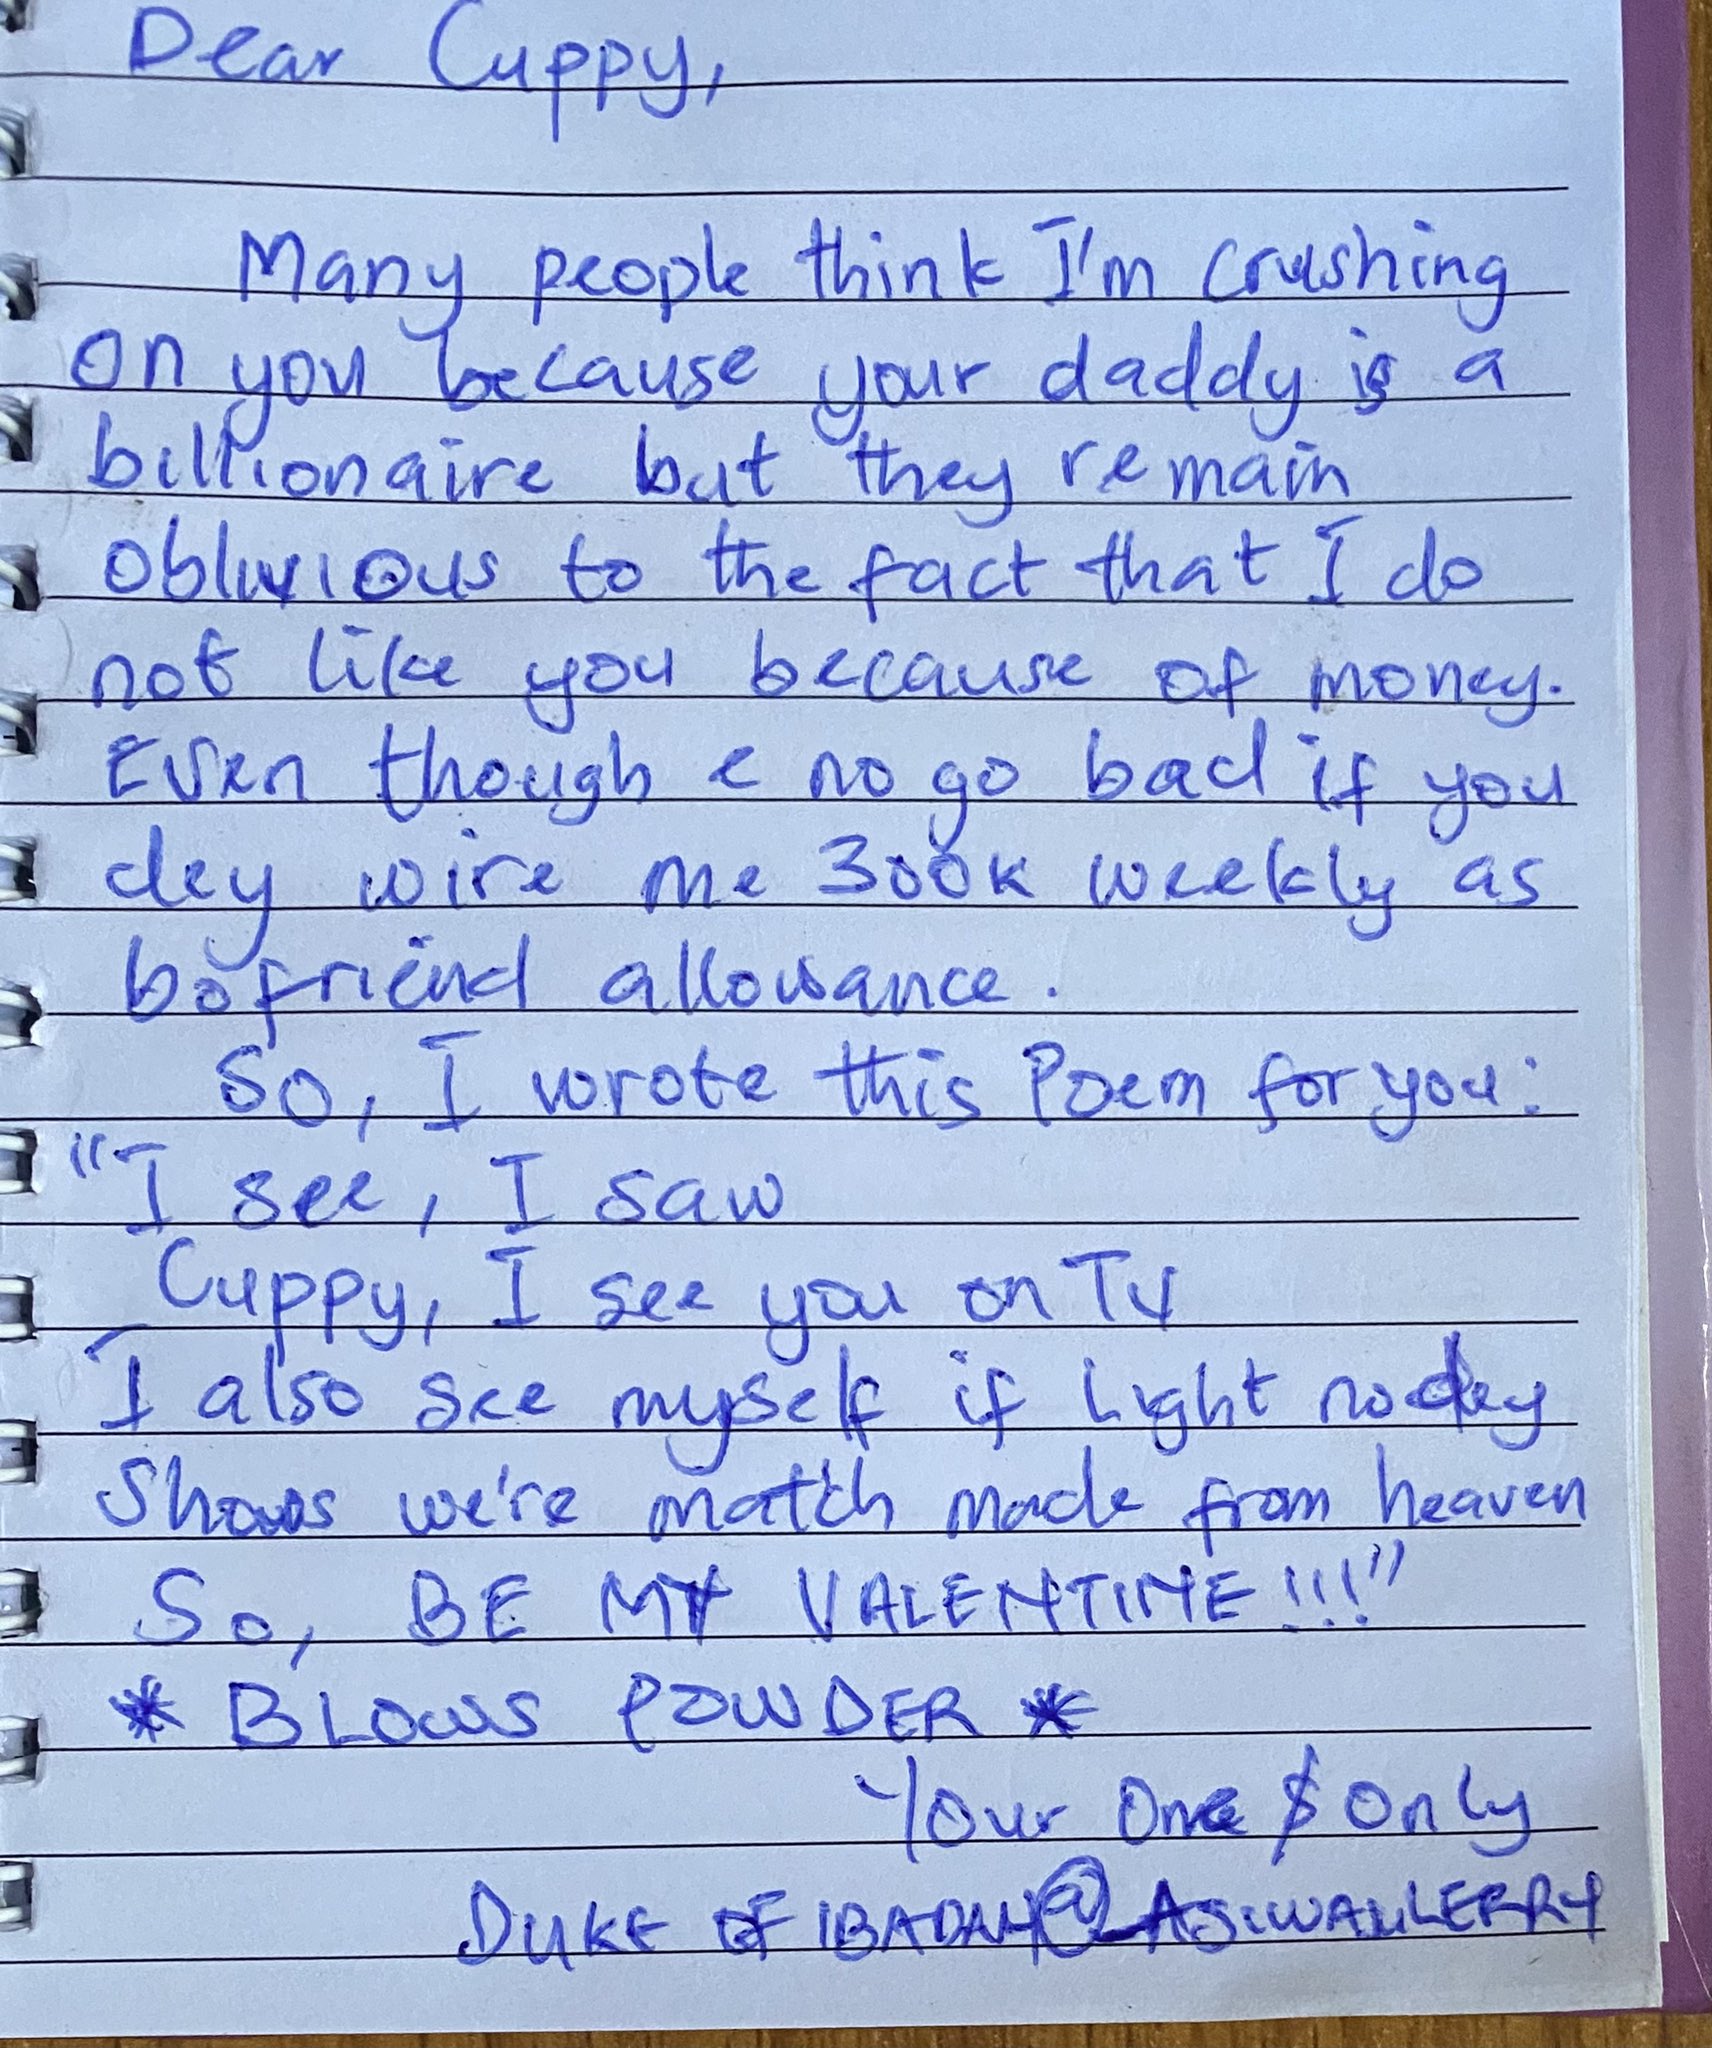 Dear Cuppy,
Many people think I'm crushing
on you because your daddy is a
billionaire but they remain
oblivious to the fact that I do
not like you because of money.
Even though e no go bad if you
dey wire me 300k weekly as
bofriend allowance.
So, I wrote this Poem for you:
"I see, I saw
Cuppy, I see you on TV
I also see myself if Light no dey
Shows we're match made from heaven
So, BE MY VALENTINE!!!"
* BLOWS POWDER *
Your One & Only
DUKE OF IBADAN @_ASIWAJULERRY